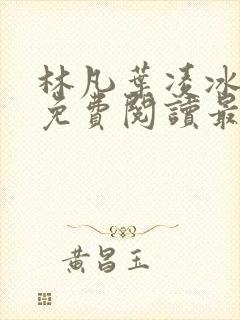 林凡葉凌冰
免費閱讀最
黃昌玉